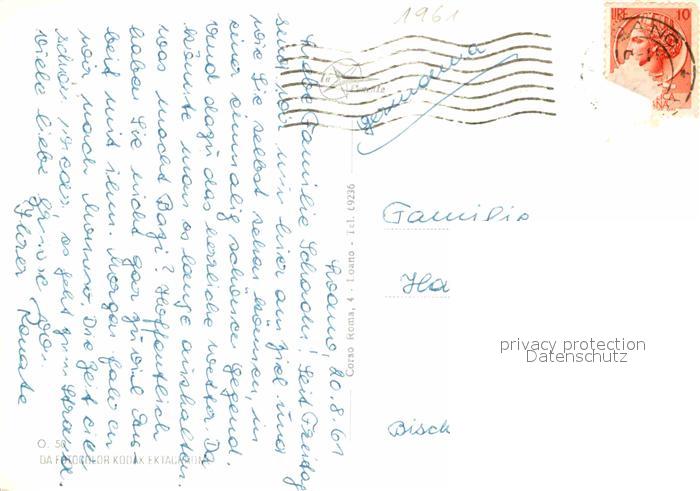 1961
LIRE 10
Germania
Loano, 20.8.61
Liebe Familie Schach! Seit Freitag
sind wir nun hier am Ziel und
wie Sie selbst schon kennen, in
einer einmalig schönen Gegend.
Und dazu das herrliche Wetter. Da
könnte man es lange aushalten.
Was macht Bazi? Hoffentlich
haben Sie nicht gar zu viel Ar-
beit mit ihm. Morgen fahren
wir nach Monaco. Die Zeit
schön, es geht zum Strand.
Viele liebe Grüsse von
Ihrer Renate
Corso Roma, 4 - Loano - Tel. 69236
Familie
Ha
Bisch
privacy protection
Datenschutz
O. 50
DA FOTOCOLOR KODAK EKTACHROME